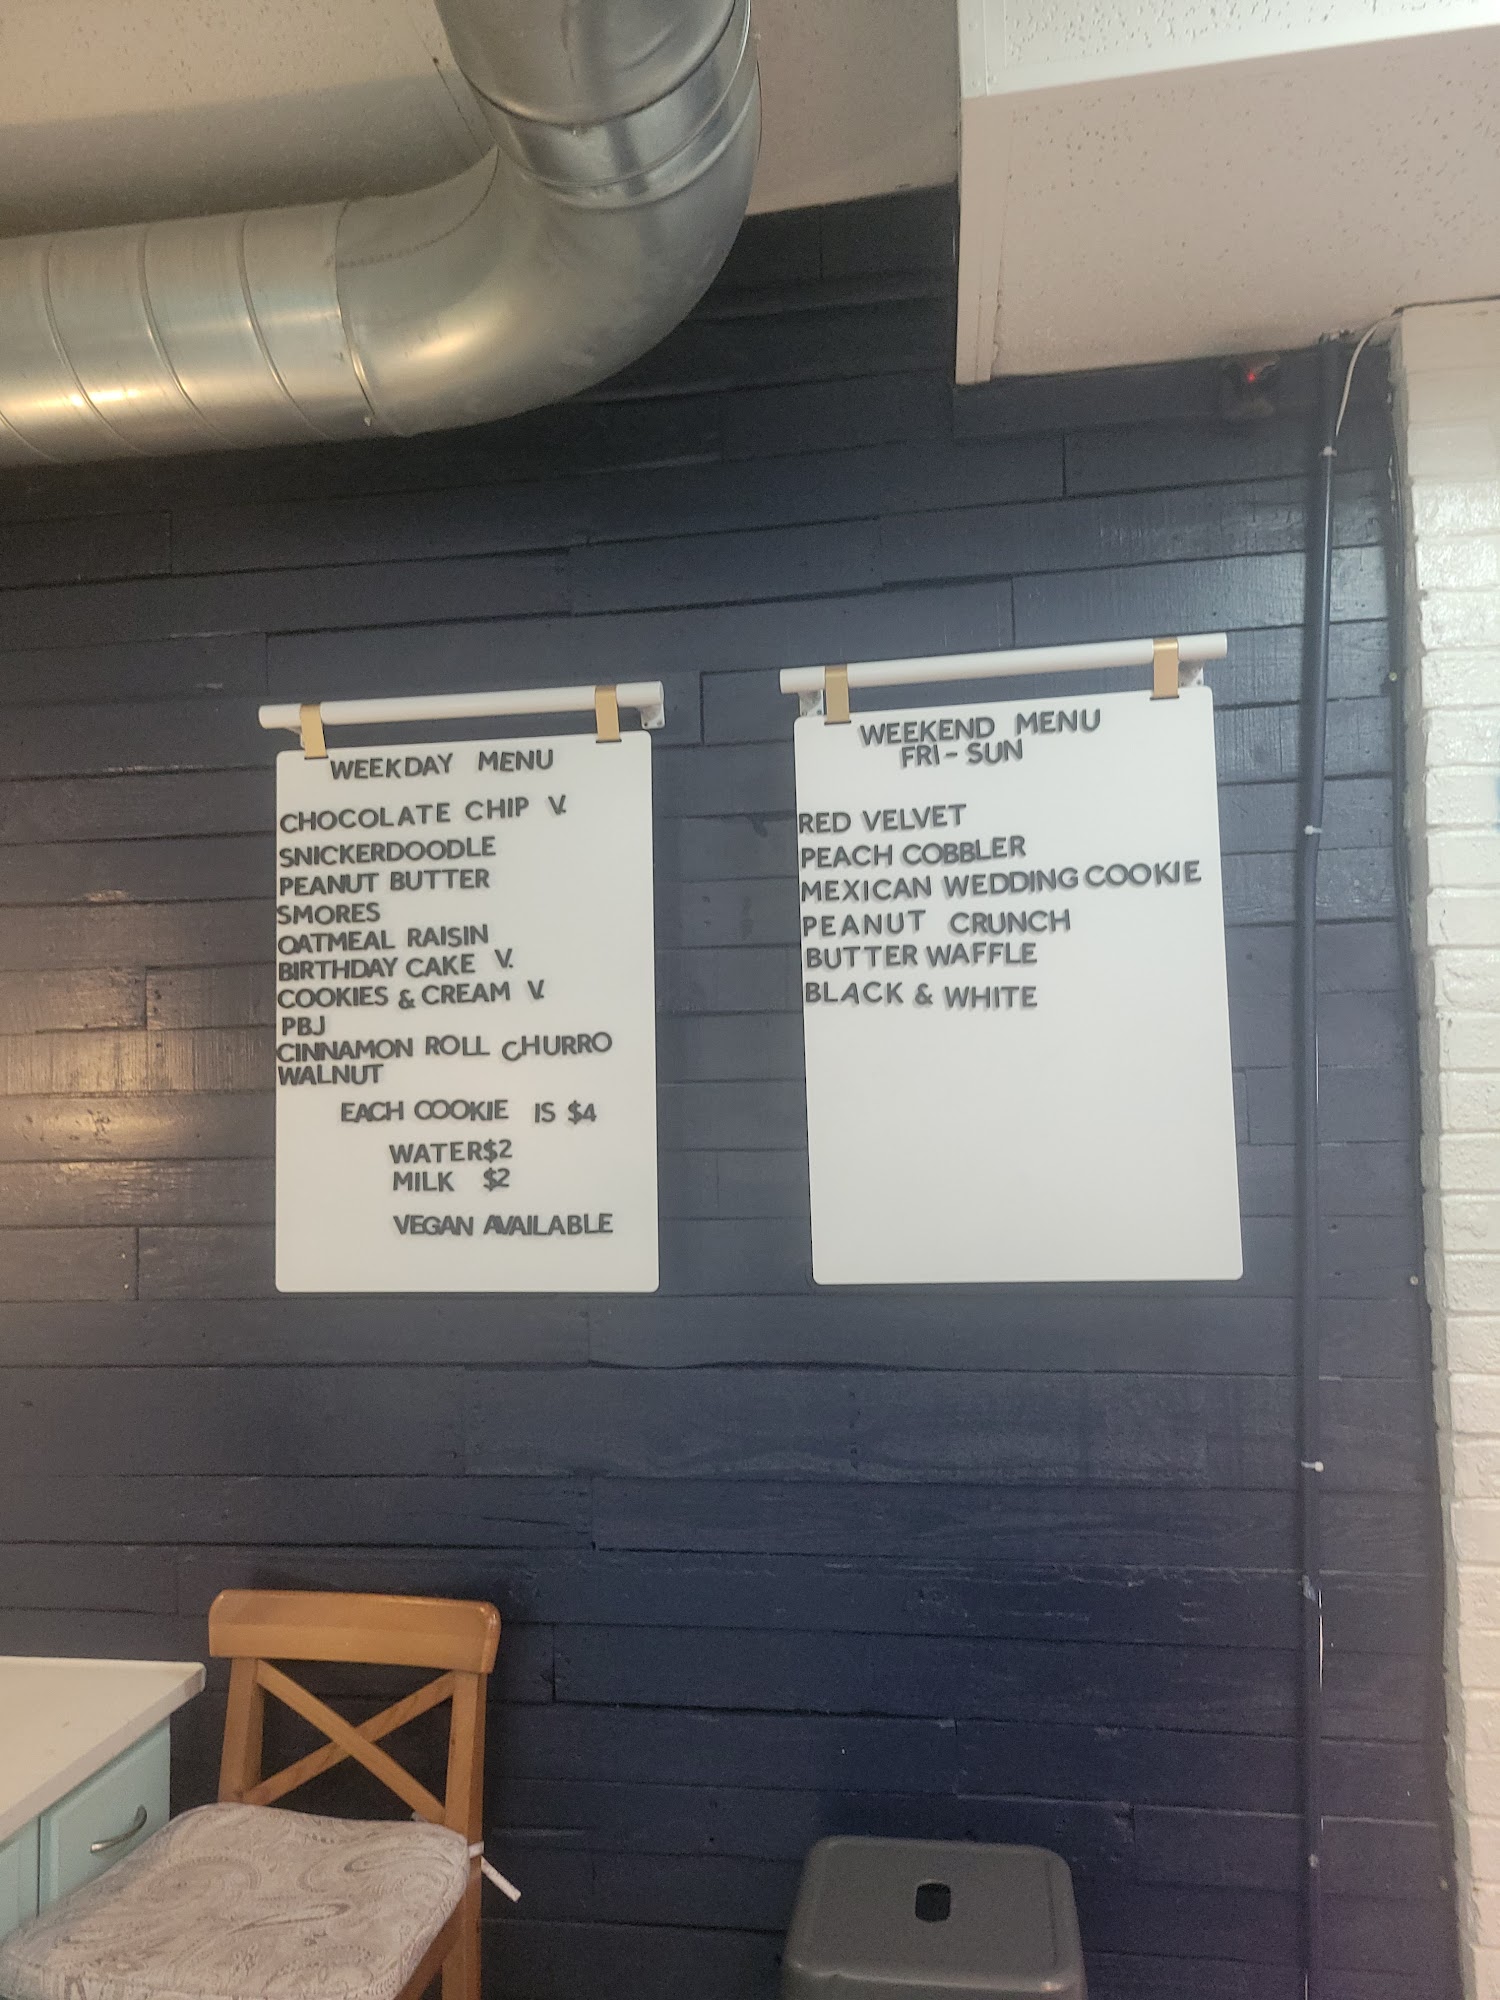 WEEKDAY MENU
CHOCOLATE CHIP V.
SNICKERDOODLE
PEANUT BUTTER
SMORES
OATMEAL RAISIN
BIRTHDAY CAKE V.
COOKIES & CREAM V.
PBJ
CINNAMON ROLL CHURRO
WALNUT
EACH COOKIE IS $4
WATER $2
MILK $2
VEGAN AVAILABLE
WEEKEND MENU
FRI - SUN
RED VELVET
PEACH COBBLER
MEXICAN WEDDING COOKIE
PEANUT CRUNCH
BUTTER WAFFLE
BLACK & WHITE